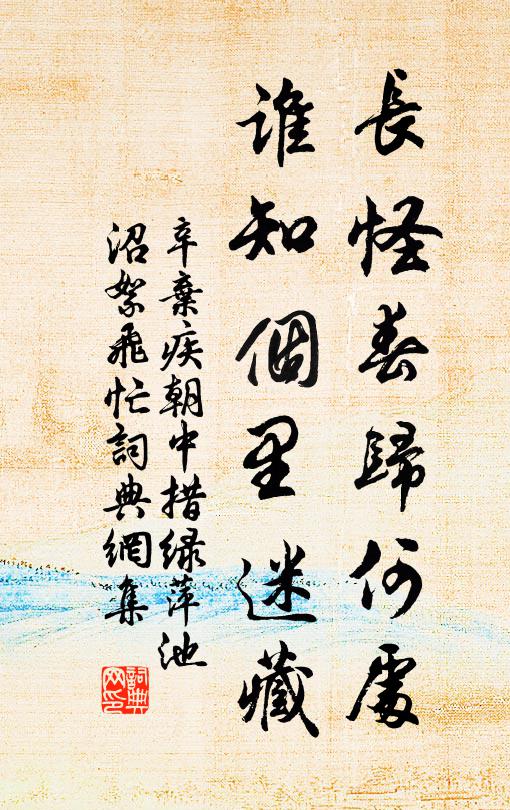 長怪春歸何處
誰知個里迷藏
辛棄疾朝中措綠萍池
沼絮飛忙詞典網集
詞典
网印